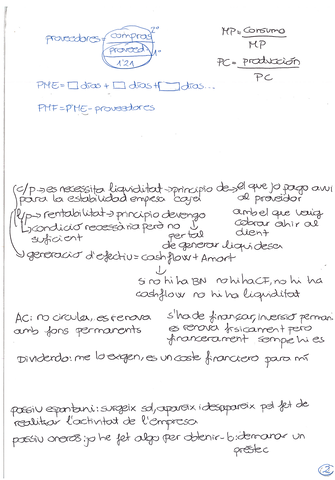 proveedores = compras 2º
proveed. 1º
1'21
MP = Consumo
MP
PC = producción
PC
PME = □ días + □ días + □ días...
PMF = PME - proveedores
c/p → es necessita liquiditat → principio de → el que jo pago avui
para la estabilidad empesa caja al proveïdor
l/p → rentabilitat → principio devengo amb el que vaig
↳ condició necessària però no cobrar ahir al
suficient per tal client
de generar liquidesa
→ generació d'efectiu = cashflow + Amort
↓
si no hi ha BN no hi ha CF, no hi ha
cashflow no hi ha liquiditat
AC: no circula, es renova s'ha de finançar, inversió perman
amb fons permanents es renova físicament però
financerament sempre hi es
Dividendo: me lo exigen, es un coste financiero para mi
passiu espontani: surgeix sol, apareix i desapareix pel fet de
realitzar l'activitat de l'empresa
passiu onerós: jo he fet algo per obtenir-lo: demanar un
préstec
2